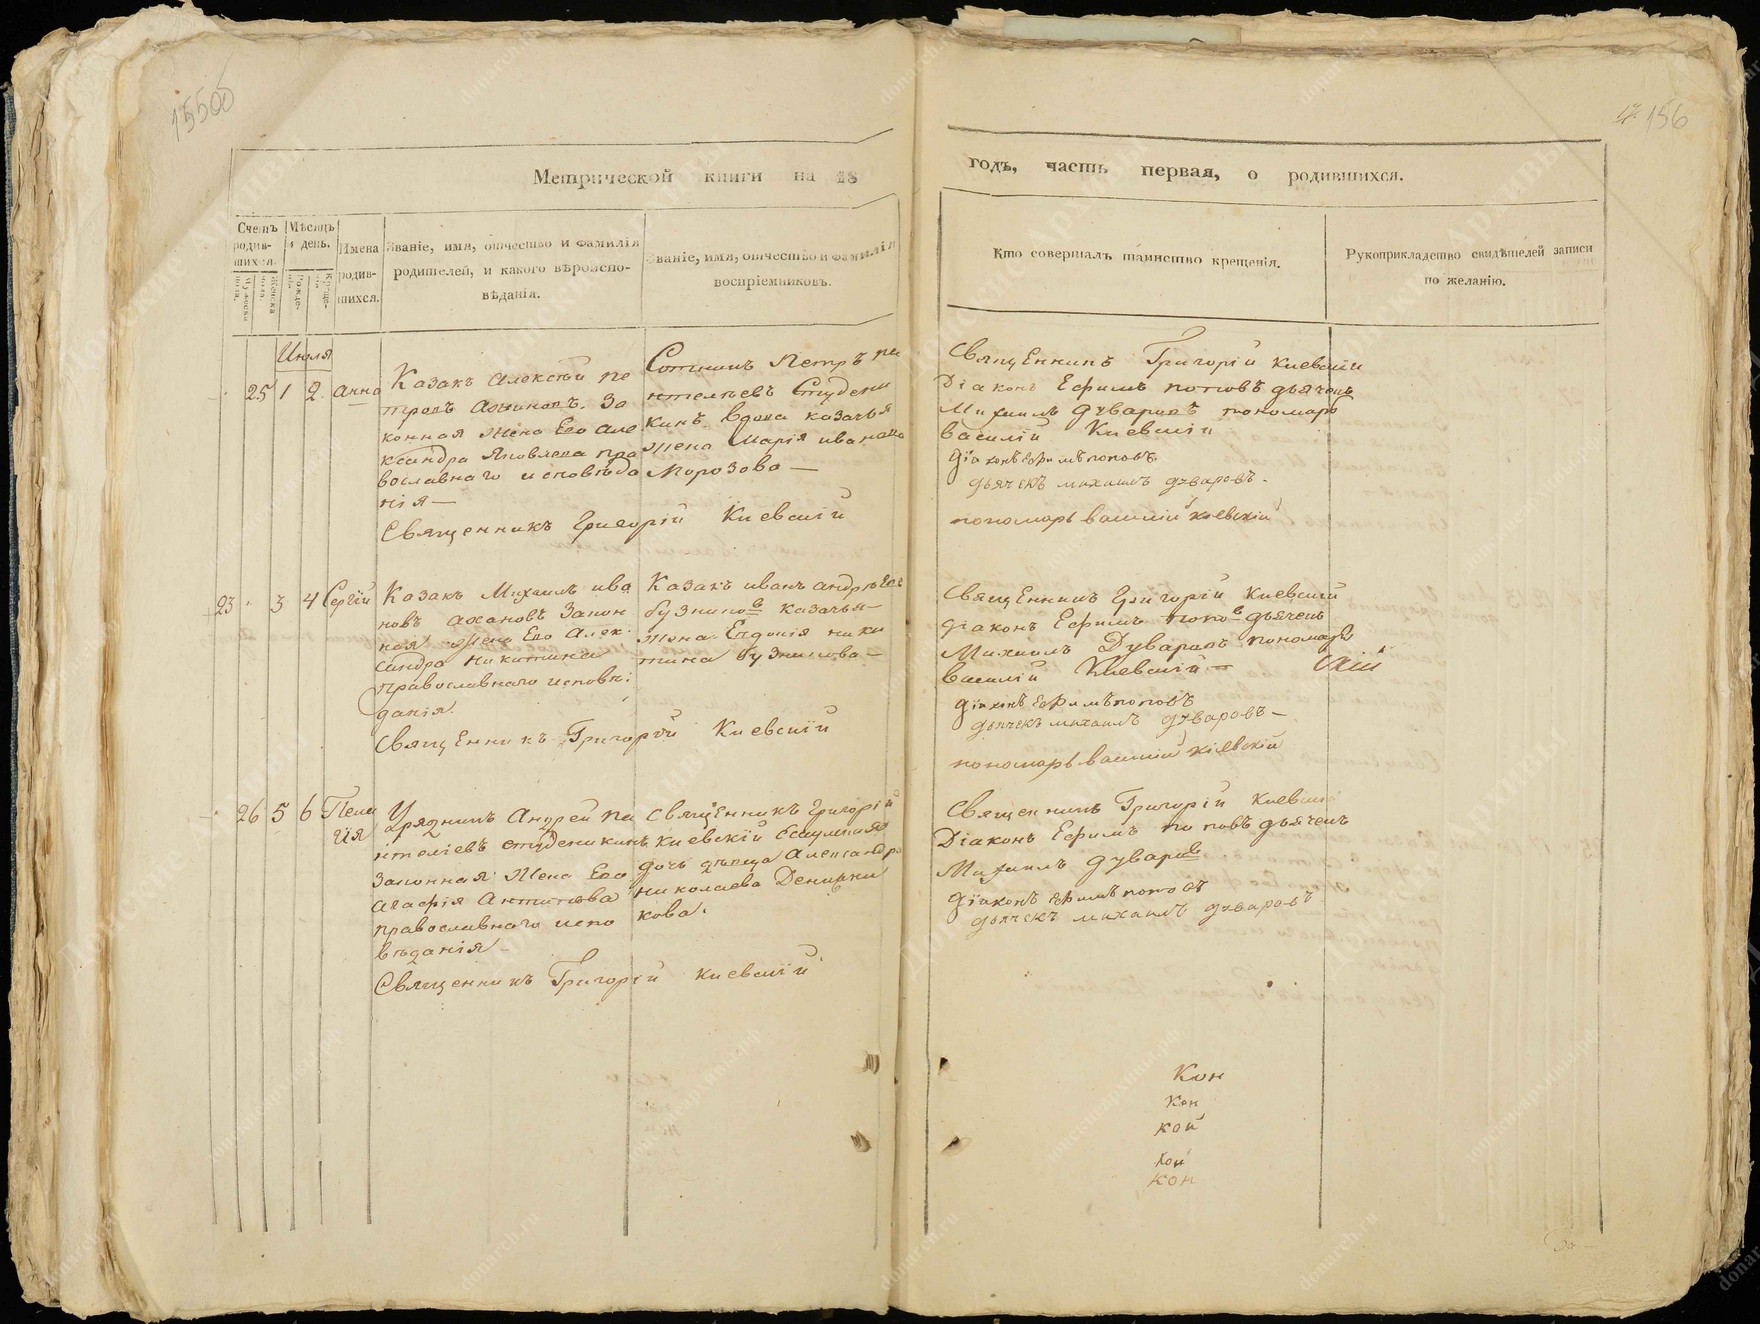 15500
156
Метрической книги на 18
годъ, часть первая, о родившихся.
Счетъ родив-шихся.
Мужеска пола.
Женска пола.
Мѣсяцъ и день.
Рожде-нія
Креще-нія
Имена родив-шихся.
Званіе, имя, отчество и фамилія
родителей, и какого вѣроиспо-
вѣданія.
Званіе, имя, отчество и фамилія
воспріемниковъ.
Кто совершалъ таинство крещенія.
Рукоприкладство свидѣтелей записи
по желанію.
Июля
25 1 2 Анна
Казакъ Алексѣй Пе
тровъ За
конная жена Его Але
ксандра Яковлева пра
вославнаго исповѣда
нія—
Священникъ Григорій Киевскій
Сотникъ Петръ Па
нтелѣевъ Студени
кинъ. вдова казачья
жена Марія иванова
Морозова—
Священникъ Григорій Киевскій
Діаконъ Ефимъ поповъ дьячекъ
Михаилъ дуваровъ пономарь
василій Киевскій
діаконъ ефимъ поповъ
дьячекъ михаилъ дуваровъ.
пономарь василий киевскій
23 3 4 Сергій
Казакъ Михаилъ ива
новъ Закон
ная жена Его Алек
сандра Никитина
православнаго исповѣ:
данія.
Священникъ Григорій Киевскій
Казакъ иванъ андрѣев
бузниковъ казачья—
жена Евдокія ники
тина бузникова—
Священникъ Григорій Киевскій
діаконъ Ефимъ поповъ дьячекъ
Михаилъ Дуваровъ пономарь
василій Киевскій—
діаконъ ефимъ поповъ
дьячекъ михаилъ дуваровъ—
пономарь василий кіевскій
26 5 6 Пела
гія
Урядникъ Андрей па
нтелѣевъ студеникинъ
Законная жена Его
Агафія Антипова
православнаго испо
вѣданія—
Священникъ Григорій Киевскій
священникъ Григорій
киевскій
дочь дѣвица Александра
николаева Денисни
кова.
Священникъ Григорій Киевскій
Діаконъ Ефимъ поповъ дьячекъ
Михаилъ дуваровъ
діаконъ ефимъ поповъ
дьячекъ михаилъ дуваровъ
Кон
Кон
кой
кой
кон